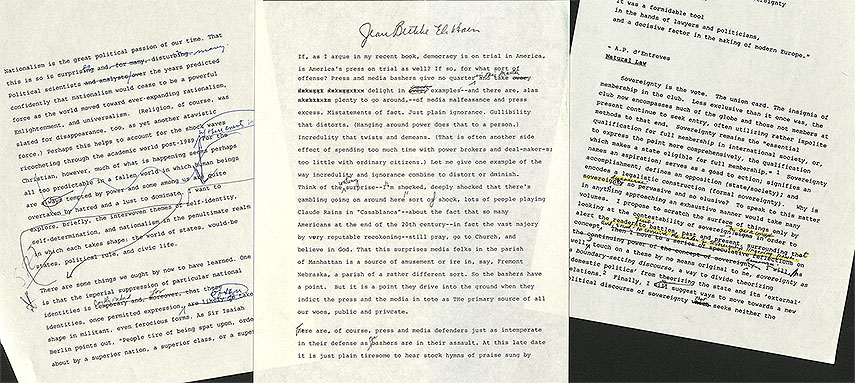 Nationalism is the great political passion of our time. That
this is so is surprising and, for many, disturbing
Political scientists and analysts over the years predicted
confidently that nationalism would cease to be a powerful
force as the world moved toward ever-expanding rationalism,
Enlightenment, and universalism. (Religion, of course, was
slated for disappearance, too, as yet another atavistic
force.) Perhaps this helps to account for the shock waves
ricocheting through the academic world post-1989. For the
Christian, however, much of what is happening seems perhaps
all too predictable in a fallen world in which human beings
are always tempted by power and some among us quite
overtaken by hatred and a lust to dominate. I want to
explore, briefly, the interwoven themes of self-identity,
self-determination, and nationalism in the penultimate realm
in which each takes shape: the world of states, would-be
states, political rule, and civic life.
There are some things we ought by now to have learned. One
is that the imperial suppression of particular national
identities is temporary and, moreover, that
identities, once permitted expression, are likely to take
shape in militant, even ferocious forms. As Sir Isaiah
Berlin points out, "People tire of being spat upon, ordered
about by a superior nation, a superior class, or a
Jean Bethke Elshtain
If, as I argue in my recent book, democracy is on trial in America,
is America's press on trial as well? If so, for what sort of
offense? Press and media bashers give no quarter and take
delight in examples--and there are, alas
plenty to go around,--of media malfeasance and press
excess. Mistatements of fact. Just plain ignorance. Gullibility
that distorts. (Hanging around power does that to a person.)
Incredulity that twists and demeans. (That is often another side
effect of spending too much time with power brokers and deal-makers;
too little with ordinary citizens.) Let me give one example of the
way incredulity and ignorance combine to distort or diminish.
Think of the surprise--I'm shocked, deeply shocked that there's
gambling going on around here sort of shock, lots of people playing
Claude Rains in "Casablanca"--about the fact that so many
Americans at the end of the 20th century--in fact the vast majority
by every reputable reckoning--still pray, go to Church, and
believe in God. That this surprises media folks in the parish
of Manhattan is a source of amusement or ire in, say, Fremont
Nebraska, a parish of a rather different sort. So the bashers
have a point. But it is a point they drive into the ground when they
indict the press and the media in toto as THe primary source of all
our woes, public and private.
There are, of course, press and media defenders just as intemperate
in their defense as bashers are in their assault. At this late date
it is just plain tiresome to hear stock hymns of praise sung by
It was a formidable tool
in the hands of lawyers and politicians,
and a decisive factor in the making of modern Europe."
- A.P. d'Entreves
Natural Law
Sovereignty is the vote. The union card. The insignia of
membership in the club. Less exclusive than it once was, the
club now encompasses much of the globe and those not members at
present continue to seek entry, often utilizing rather impolite
methods to that end. Sovereignty remains the "essential
qualification for full membership in international society, or,
to express the point more comprehensively, the qualification
which makes a state eligible for full membership." 1 Sovereignty
names an aspiration; serves as a goad to action; signifies an
accomplishment; defines an opposition (state/society);
encodes a legalistic construction (formal sovereignty). Why is
sovereignty so pervasive and so elusive? To speak to this matter
in anything approaching an exhaustive manner would take many
volumes. I propose to scratch the surface of things only by
looking at the contestability of sovereignty in order to
alert the reader to battles, past and present, surrounding the
concept,
the continuing power of the concept of sovereignty. I will,
touch on a theme by no means original to me, sovereignty as
a boundary-setting discourse, a way to divide theorizing
domestic politics from theorizing the state and its 'external'
relations.2 Finally, I suggest ways to move towards a new
political discourses of sovereignty seeks neither the